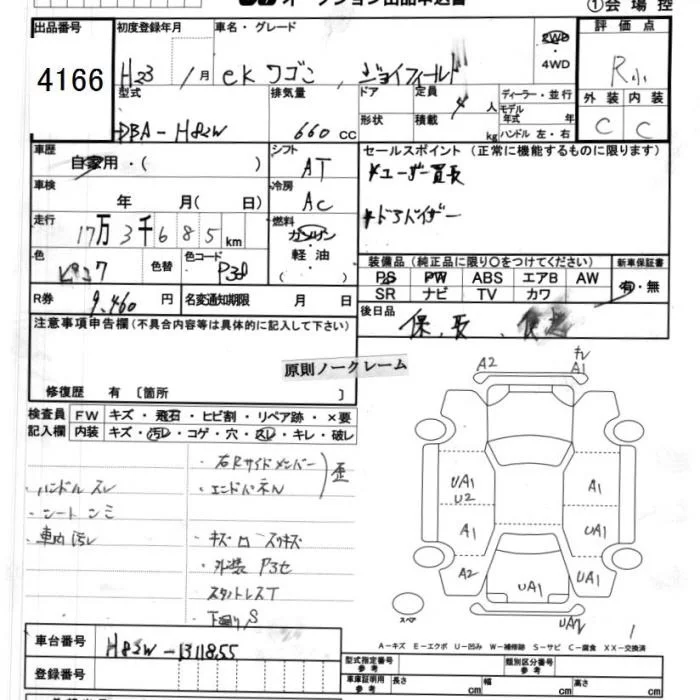 オークション出品申込書
①会場控
出品番号 初度登録年月 車名・グレード 評価点
4166
H23 / 1月 ekワゴン ジョイフィールド
2WD
4WD
R小
型式 排気量 ドア 定員 ディーラー・並行
4人 モデル
外装 内装
DBA-H82W 660cc
形状 積載 kg 年式 年
ハンドル 左・右
C C
車歴 シフト セールスポイント(正常に機能するものに限ります)
自家用・( ) AT *ユーザー買長
車検 冷房
年 月( 日) AC *ドアバイザー
走行 燃料
17万3千685km ガソリン
軽油
( )
色 色替 色コード
P38
装備品(純正品に限り○をつけてください) 新車保証書
PS PW ABS エアB AW
SR ナビ TV カワ
有・無
R券 9,460円 名変通知期限 月 日
後日品 保、長、
注意事項申告欄(不具合内容等は具体的に記入して下さい)
原則ノークレーム
修復歴 有〔箇所 〕
検査員 FW キズ・飛石・ヒビ割・リペア跡・×要
記入欄 内装 キズ・汚レ・コゲ・穴・スレ・キレ・破レ
・右Rサイドメンバー
・エンドパネル
歪
・ハンドルスレ
・シートシミ
・車内汚レ
・キズ凹スリキズ
・外装P3セ
・スタットレスT
・下回りS
A2
キレ
A1
UA1
U2
A1
A1
UA1
A2
UA1
UA1
UA2
スペア
1
A-キズ E-エクボ U-凹み W-補修跡 S-サビ C-腐食 XX-交換済
車台番号 H82W-1311855
登録番号
型式指定番号
参考
類別区分番号
参考
車庫証明用
参考
長さ cm 幅 cm 高さ cm